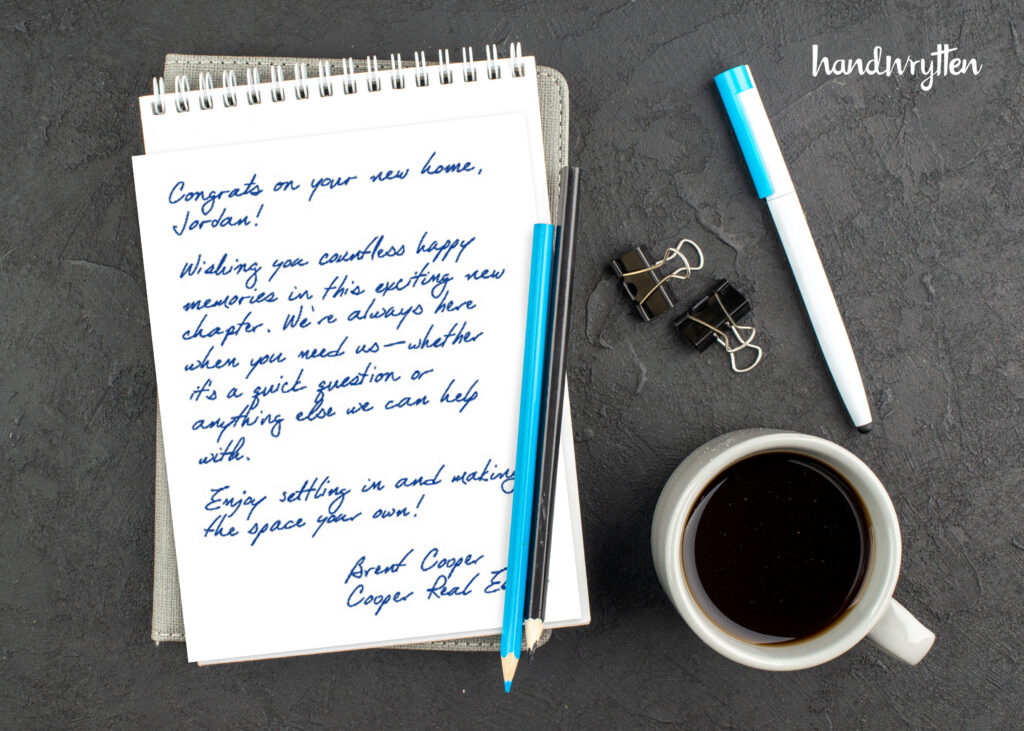 handwrytten
Congrats on your new home,
Jordan!
Wishing you countless happy
memories in this exciting new
chapter. We're always here
when you need us—whether
it's a quick question or
anything else we can help
with.
Enjoy settling in and making
the space your own!
Brent Cooper
Cooper Real